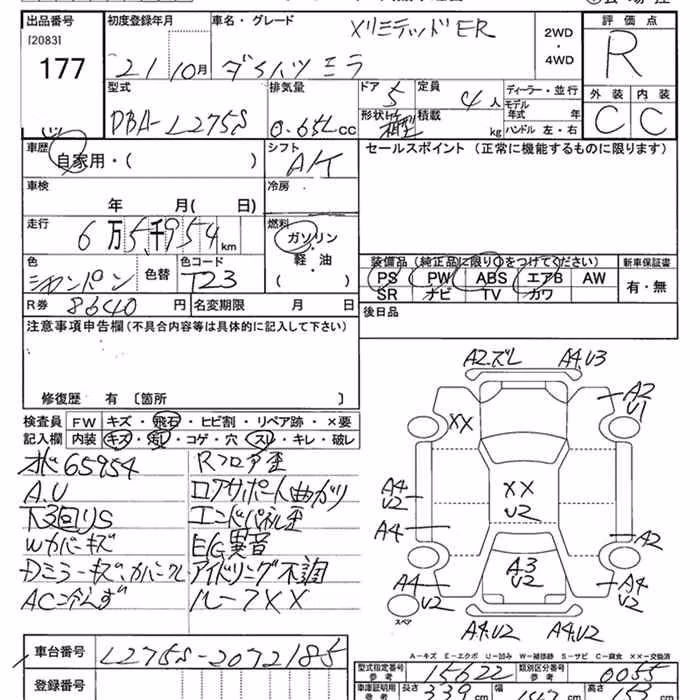 出品番号 初度登録年月 車名・グレード Xリミテッド ER 2WD・4WD 評価点
[2083] 177 21 10月 ダイハツ ミラ R
型式 排気量 ドア 5 定員 4人 ディーラー・並行 外装 内装
DBA-L275S 0.65L cc 形状 箱型 積載 kg モデル年式 年 C C
ハンドル 左・右
車歴 自家用・( ) シフト A/T セールスポイント (正常に機能するものに限ります)
車検 年 月( 日) 冷房
走行 6万5千954km 燃料 ガソリン
軽・油
( )
色 シャンパン 色替 色コード T23
装備品 (純正品に限り○をつけてください) 新車保証書
PS PW ABS エアB AW 有・無
SR ナビ TV カワ
R券 8640円 名変期限 月 日 後日品
注意事項申告欄 (不具合内容等は具体的に記入して下さい)
修復歴 有 〔箇所 〕
検査員 FW キズ・飛石・ヒビ割・リペア跡・×要
記入欄 内装 キズ・汚レ・コゲ・穴・スレ・キレ・破レ
65954 Rフロア歪
A.U コアサポート曲がり
下3回りS エンドパネル歪
Wカバーキズ E/G異音
Dミラーキズ、カバークレ アイドリング不調
AC冷えず ルーフXX
A2.ズレ A4.U3
A2
U1
XX
A4
U2
XX
U2
A4
A2
A3
U2
A4
U2
A4
U2
スペア
A4.U2 A4.U2
A-キズ E-エクボ U-凹み W-補修跡 S-サビ C-腐食 XX-交換済
車台番号 L275S-2072185 型式指定番号 参考 15622 類別区分番号 参考 0055
登録番号 車庫証明用 参考 長さ 339cm 幅 147cm 高さ 153cm